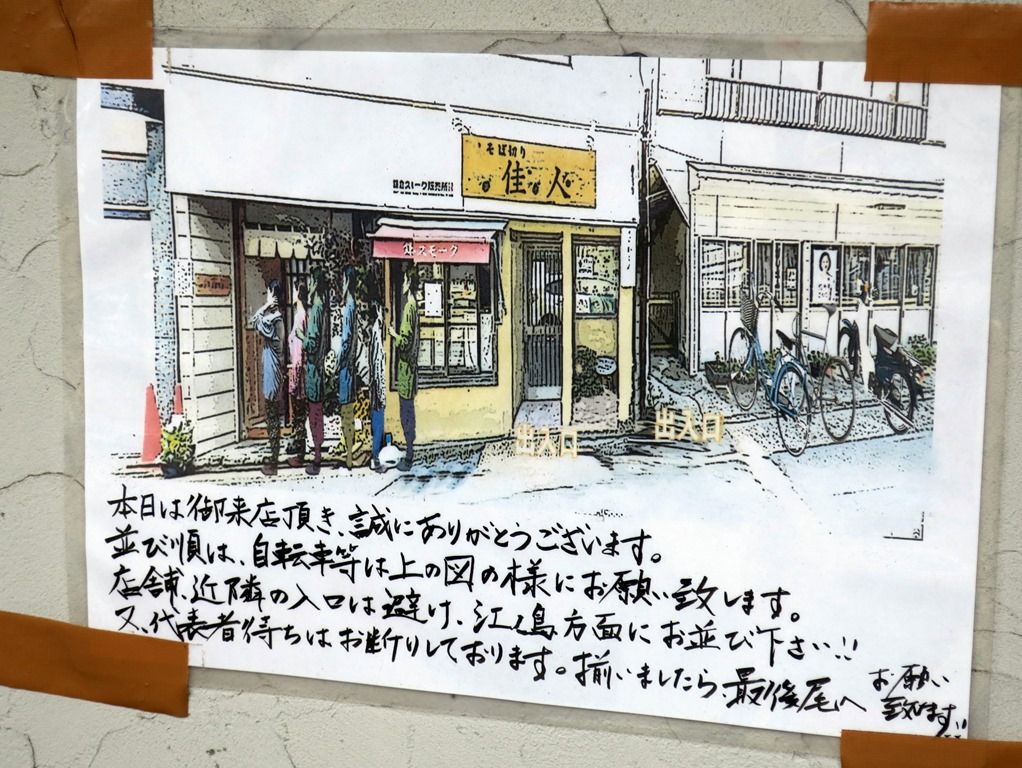 そば切り
佳人
スモーク
出入口
出入口
本日は御来店頂き、誠にありがとうございます。
並び順は、自転車等は上の図の様にお願い致します。
店舗、近隣の入口は避け、江ノ島方面にお並び下さい!!
又、代表者待ちはお断りしております。揃いましたら最後尾へ
お願い
致します!!